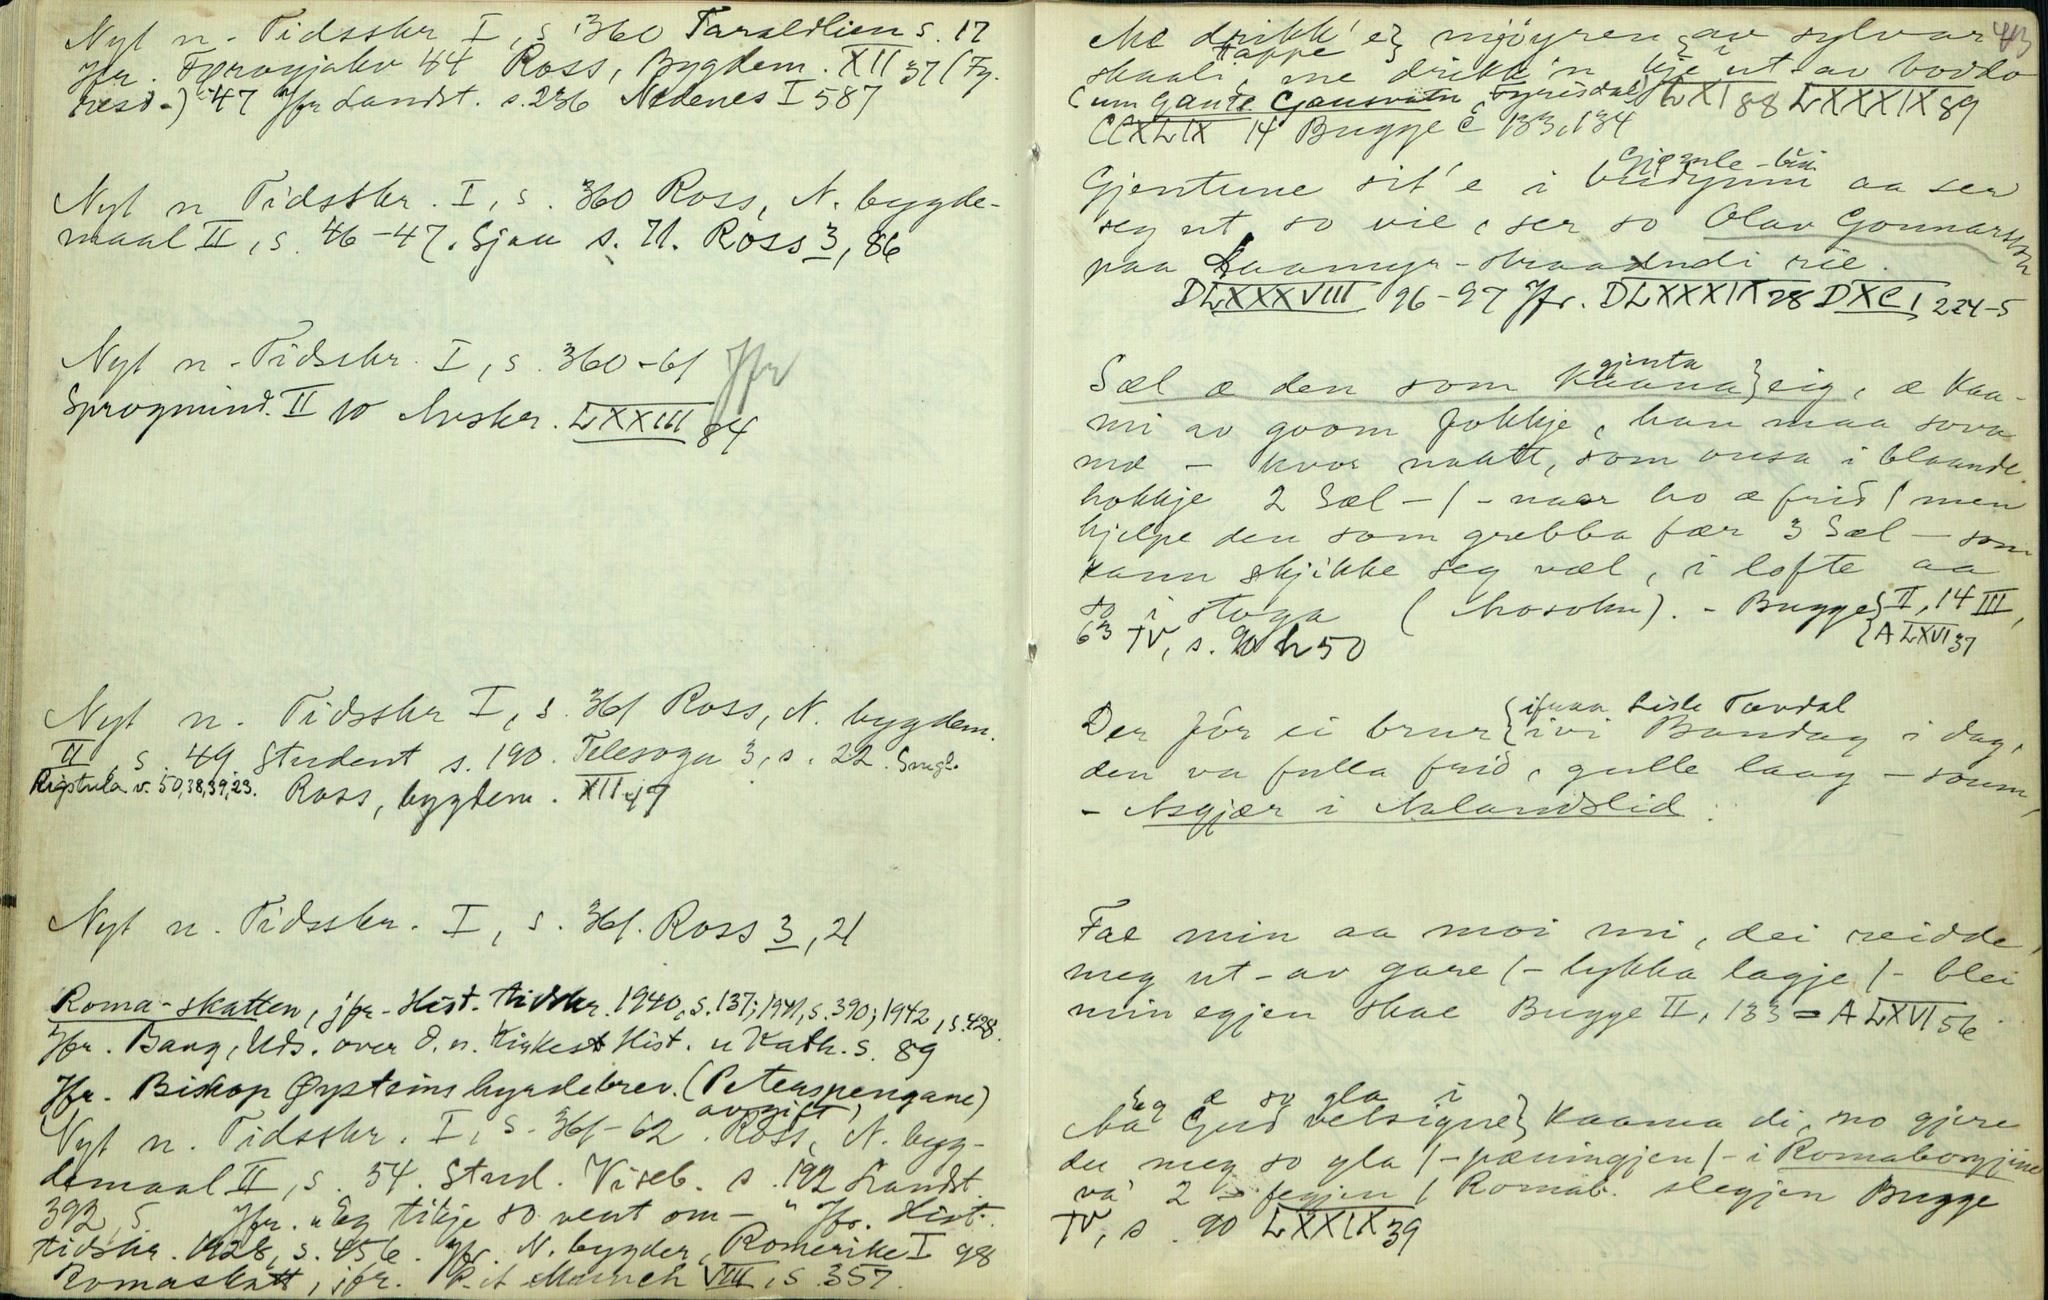 Nyt n. Tidsskr I, s. 360 Taraldlien s. 17
Jfr. Sprogjakv 44 Ross, Bygdem. XII 37 (Fy-
resd.) 47 Jfr Landst. s. 236 Nedenes I 587
Nyt n Tidsskr. I, s. 360 Ross, N. bygde-
maal II, s. 46-47. Sjaa s. 71. Ross 3, 86
Nyt n. Tidsskr. I, s. 360-61 Jfr
Sprogmind. II 10 Avskr. LXXIII 84
Nyt n. Tidsskr I, s. 361 Ross, N. bygdem.
II, s. 49 Student s. 190. Telesoga 3, s. 22.
Rigstula v. 50,38,39,23. Ross, bygdem. XII 47
Nyt n. Tidsskr. I, s. 361. Ross 3, 21
Roma-skatten, jfr. Hist. tidskr. 1940, s. 137; 1941, s. 390; 1942, s. 428.
Jfr. Bang, Uds. over d. n. Kirkes Hist. u Kath. s. 89
Jfr. Biskop Øysteins hyrdebrev. (Peterspengane)
avgift,
Nyt n. Tidsskr. I, s. 361-62. Ross, N. byg-
demaal II, s. 54. Stud. Viseb. s. 192 Landst.
392, 5. Jfr. "Eg tikje so vent om - " Jfr. Hist.
tidskr. 1928, s. 456. Jfr. N. bygder, Romerike I 98
Romaskatt, jfr. P. A Munch VIII, s. 357.
43
Me drikk'e} mjöyren av sylvar
tappe
skaali, me drikk'n kje ut-av bordo
(um Gaute Gausvatn, Fyrisdal) LXI 88 LXXXIX 89
CCXLIX 14 Bugge c 133, 134
Gjentune sit'e i aa ser
seg ut so vie, ser so Olav Gonnarsson
paa straandi rie.
DLXXXVIII 96-97 Jfr. DLXXXIX 28 DXCI 224-5
gjenta
Sæl æ den som kaana} eig, æ kaa-
mi av goom fokkje, han maa sova
me - kvor natt, som ousa i blaande
hokkje 2 Sæl - / - naar ho æ frid / men
hjelpe den som grebba fær 3 Sæl - som
kann skjikke seg væl, i lofte aa
so i stoga (Mosokn). - Bugge} II, 14 III,
63 IV, s. 90 h 50 } A LXVI 37
ifraa Lisle Tovdal
Der fór ei brur { ivi Bandag i dag,
den va fulla frid, gulle laag - soum,
- Asgjær i Aalandslid.
Fae min aa moi mi, dei reidde
meg ut-av gare / - lykka lagje / - blei
min egjen skae Bugge II, 133 = A LXVI 56
Eg æ so gla i
Aa Gud velsigne} kaana di, no gjere
du meg so gla / - pæningjen / - i Romaborgjine
va' 2 - fegjen / Romab. slegjen Bugge
IV, s. 90 LXXIX 39